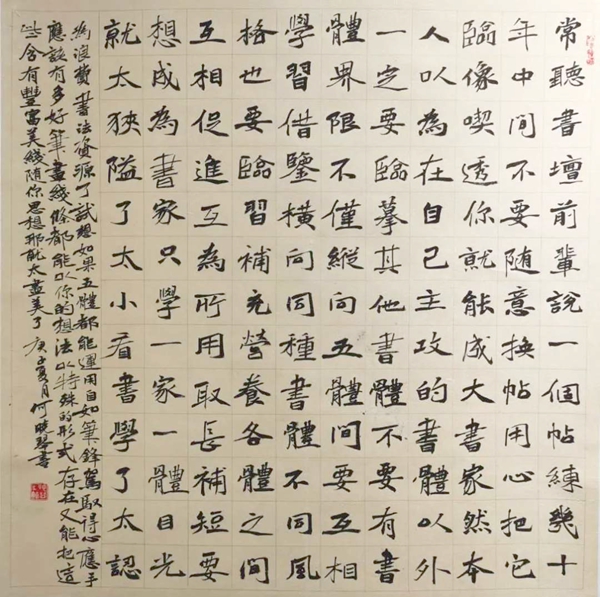 常聽書壇前輩說一個帖練幾十
年中間不要随意換帖用心把它
臨像喫透你就能成大書家然本
人以為在自己主攻的書體以外
一定要臨摹其他書體不要有書
體界限不僅縱向五體間要互相
學習借鑒橫向同種書體不同風
格也要臨習補充營養各體之間
互相促進互為所用取長補短要
想成為書家只學一家一體目光
就太狹隘了太小看書學了太認
為浪費書法資源了試想如果五體都能運用自如筆鋒駕馭得心應手
應該有多好筆畫綫條都能以你的想法以特殊的形式存在又能把這
些含有豐富美綫随你思想那就太盡美了 庚子夏月何曉琴書